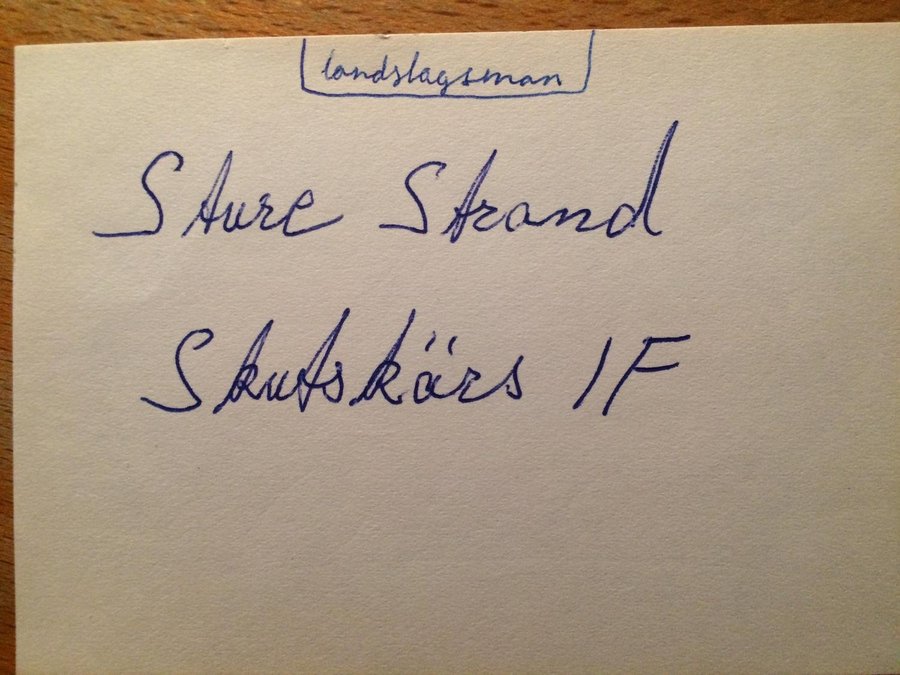 landslagsman
Sture Strand
Skutskärs IF